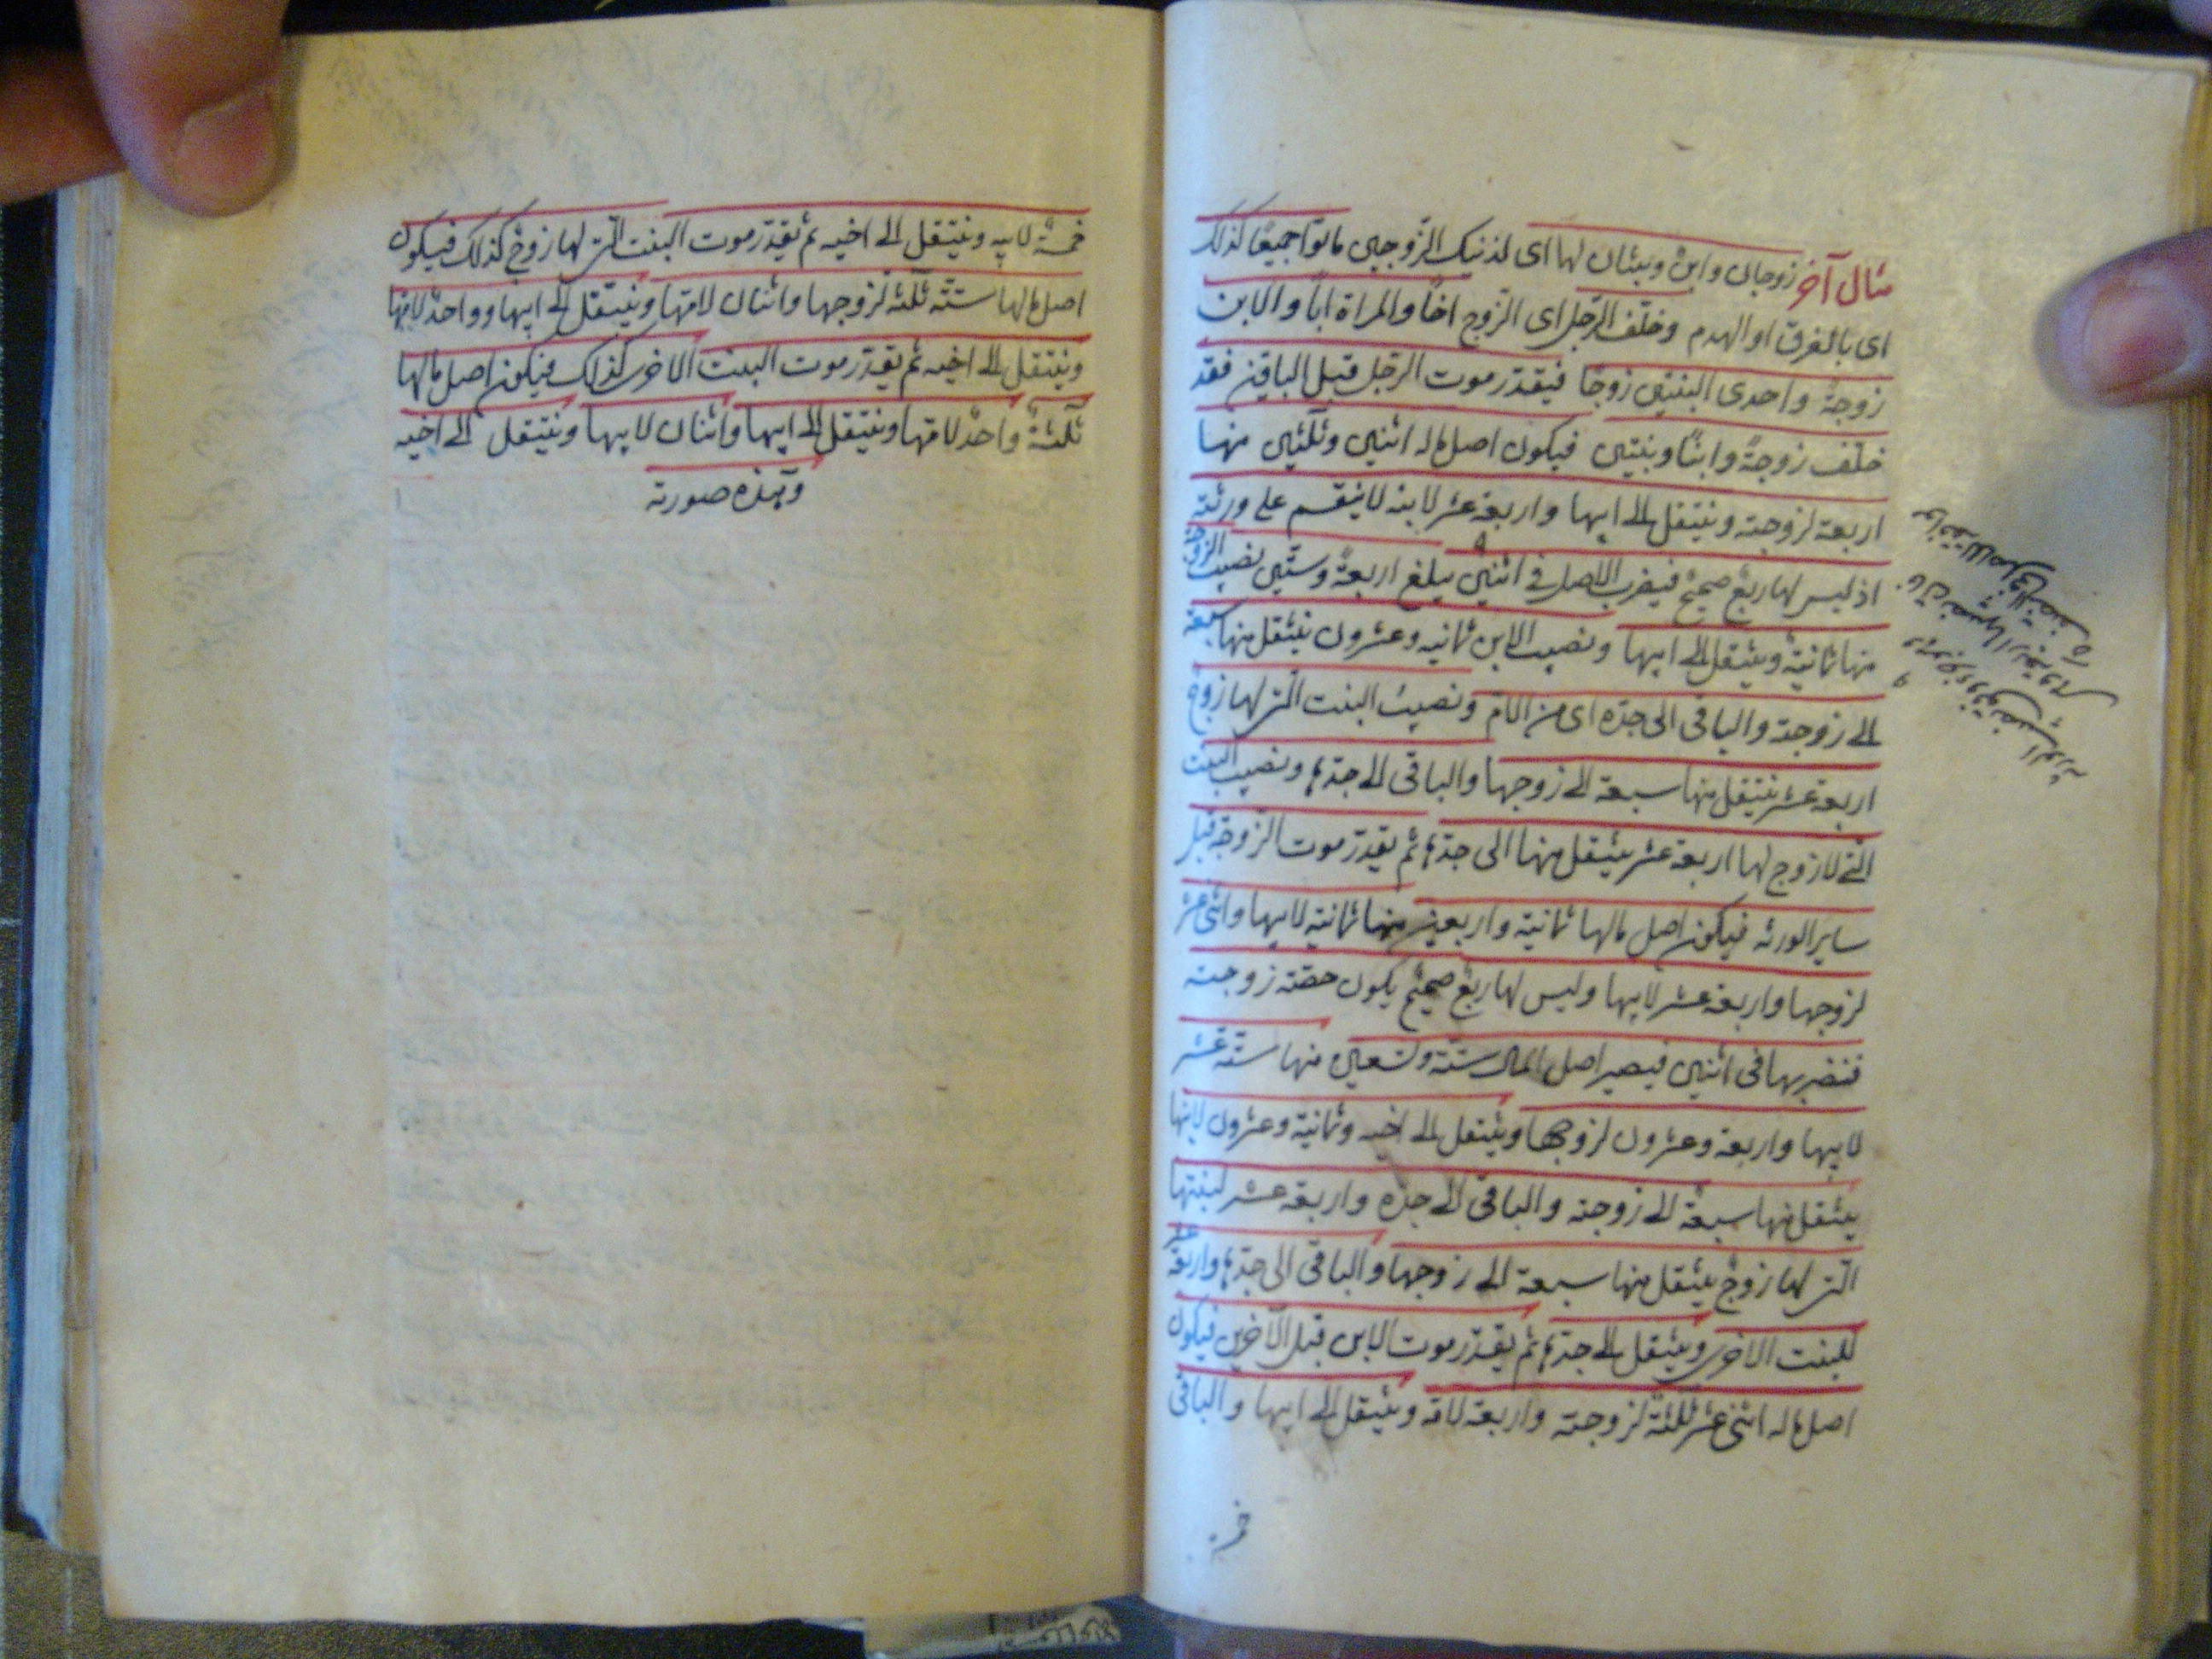 مثال آخر زوجان وابن وبنتان لها اى لذنيك الزوجين ماتوا جميعًا كذلك
اى بالغرق او الهدم وخلف الرجل اى الزوج اخًا والمراة ابًا والابن
زوجةً واحدى البنتين زوجًا فيقدّر موت الرجل قبل الباقين فقد
خلّف زوجةً وابنًا وبنتين فيكون اصل ماله اثنين وثلثين منها
اربعة لزوجته وينتقل الى ابيها واربعة عشر لابنه لا ينقسم على ورثته
اذ ليس لها ربعٌ صحيحٌ فيضرب الاصل فى اثنين يبلغ اربعةً وستين نصيب الزوجة
منها ثمانيةٌ وينتقل الى ابيها ونصيب الابن ثمانيه وعشرون ينتقل منها سبعة
الى زوجته والباقى الى جدّه اى من الامّ ونصيبُ البنت التى لها زوجٌ
اربعة عشر ينتقل منها سبعة الى زوجها والباقى الى جدّها ونصيب البنت
التى لا زوج لها اربعة عشر ينتقل منها الى جدّها ثم يقدّر موت الزوجة قبل
ساير الورثه فيكون اصل مالها ثمانية واربعين منها ثمانية لابيها واثنى عشر
لزوجها واربعة عشر لابنها وليس لها ربعٌ صحيحٌ يكون حصّته زوجته
فنضربها فى اثنين فيصير اصل المال ستّة وتسعين منها ستّة عشر
لابيها واربعة وعشرون لزوجها وينتقل الى اخيه وثمانية وعشرون لابنها
ينتقل منها سبعةٌ الى زوجته والباقى الى جدّه واربعة عشر لبنتها
التى لها زوجٌ ينتقل منها سبعة الى زوجها والباقى الى جدّها واربعة عشر
للبنت الاخرى وينتقل الى جدّها ثم يقدّر موت الابن قبل الآخرين فيكون
اصل ماله اثنى عشر ثلثةٌ لزوجته واربعة لامّه وينتقل الى ابيها والباقى
خمسةٌ لابيه وينتقل الى اخيه ثم يقدّر موت البنت التى لها زوجٌ كذلك فيكون
اصل مالها ستّه ثلثه لزوجها واثنان لامّها وينتقل الى ابيها وواحدٌ لابيها
وينتقل الى اخيه ثم يقدّر موت البنت الاخرى كذلك فيكون اصل مالها
ثلثةً واحدٌ لامّها وينتقل الى ابيها واثنان لابيها وينتقل الى اخيه
وهذه صورته